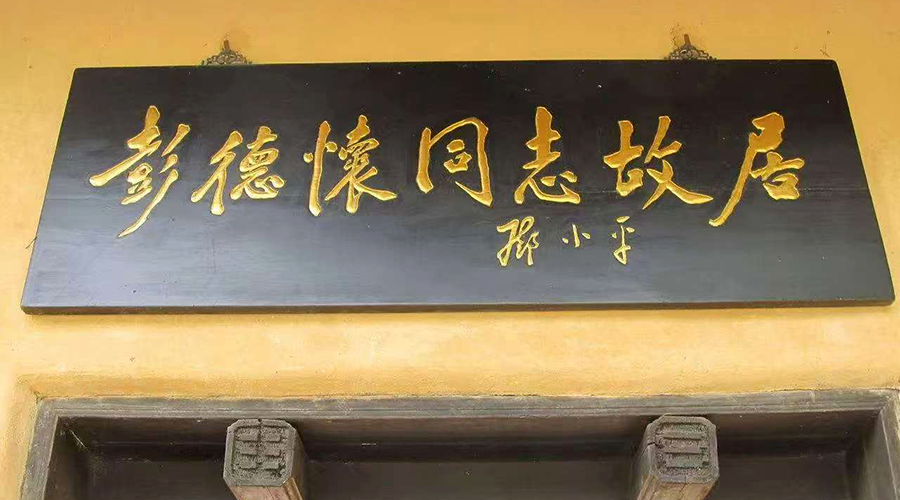 彭德懷同志故居
鄧小平